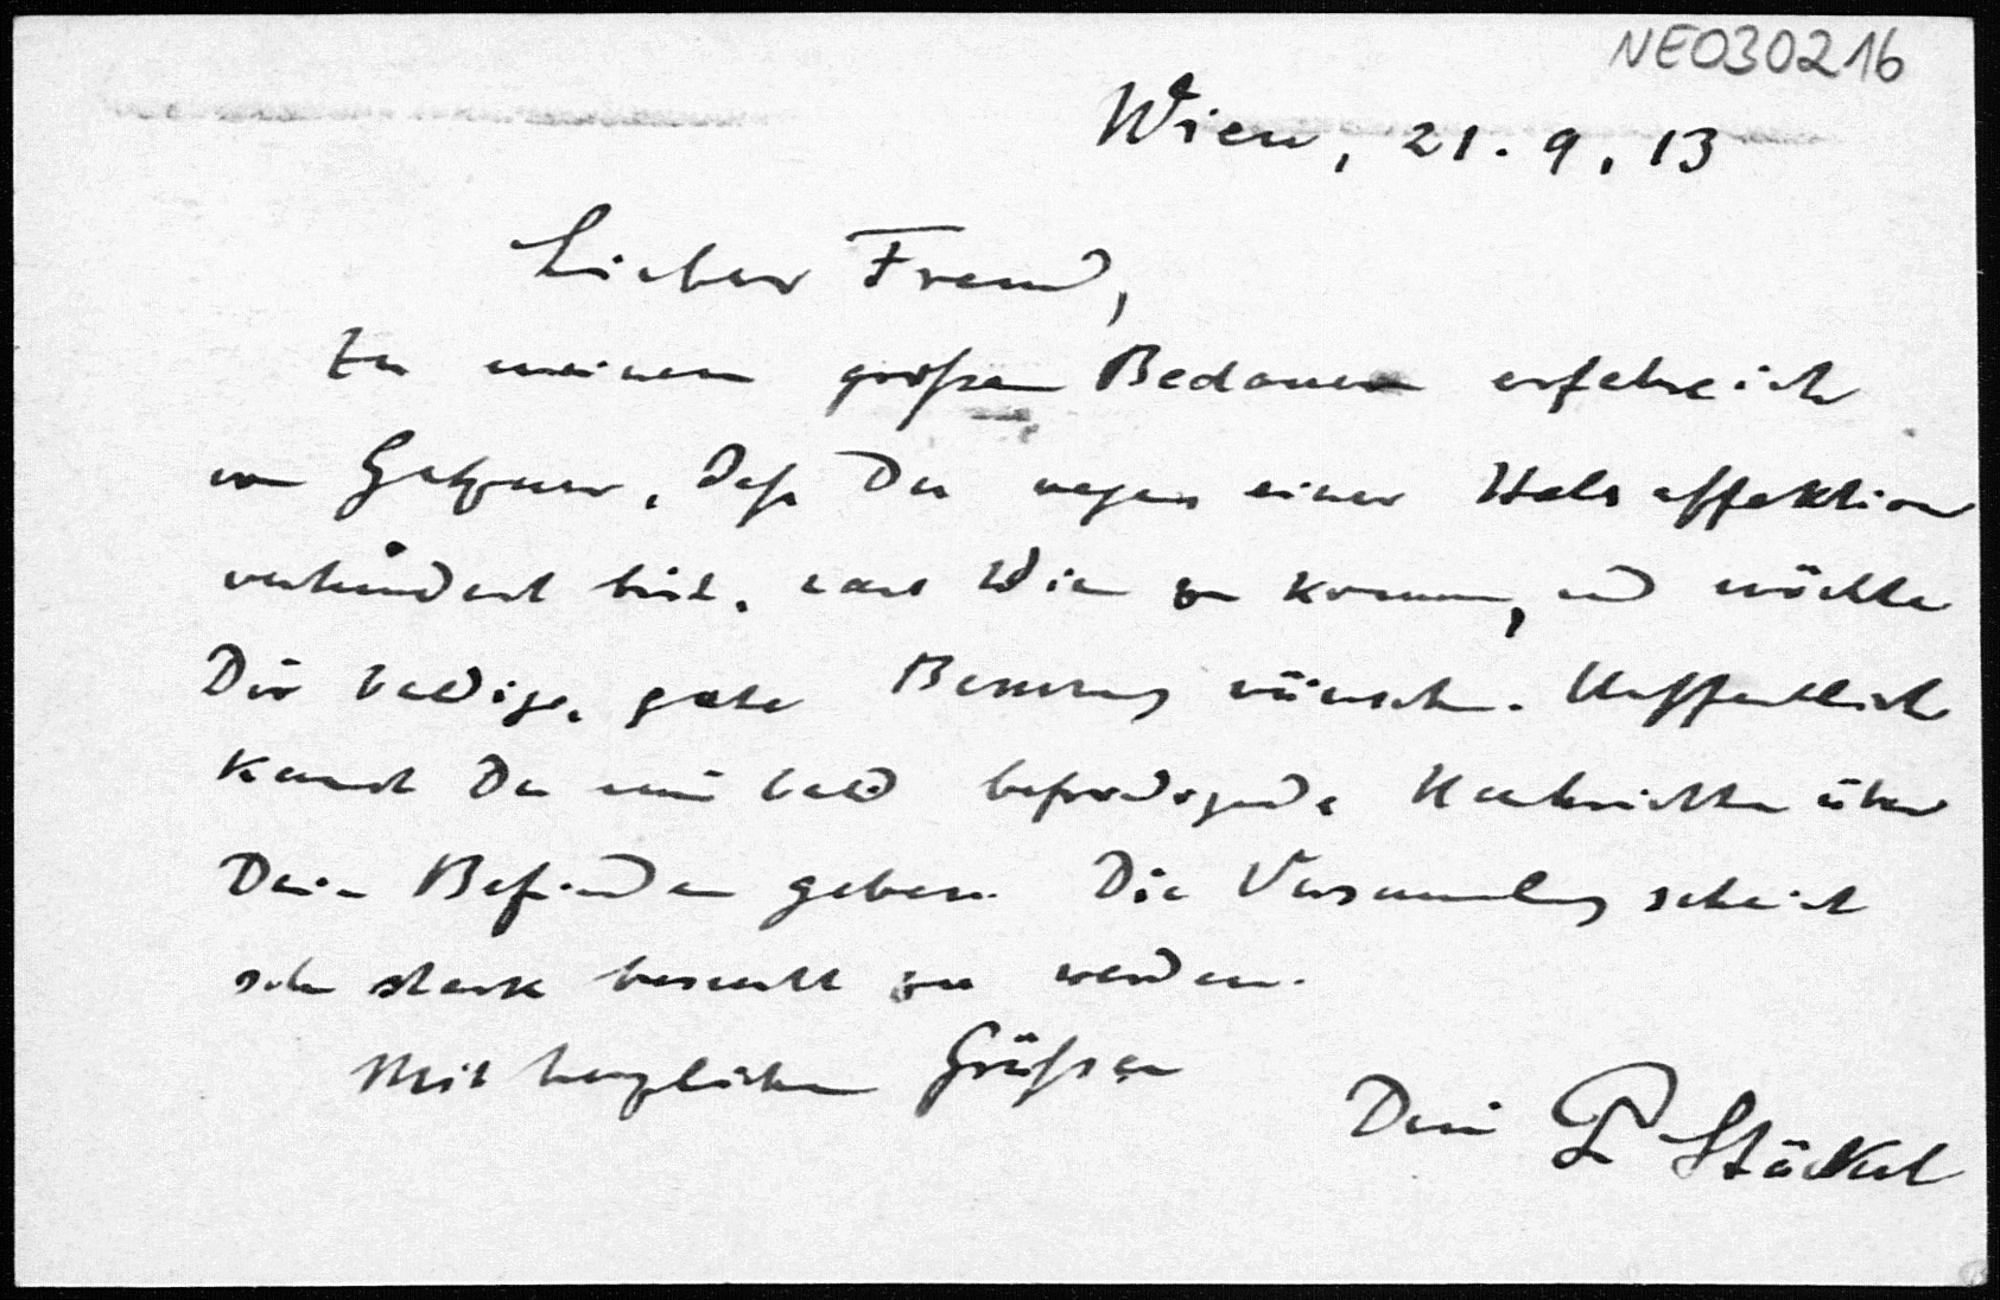 NE030216
Wien, 21. 9. 13
Lieber Freund,
Zu meinem großen Bedauern erfahre ich
von, daß Du wegen einer Halsaffektion
verhindert bist, nach Wien zu kommen, und möchte
Dir baldige, gute Besserung wünschen. Hoffentlich
kannst Du mir bald befriedigende Nachrichten über
Dein Befinden geben. Die Versammlung scheint
sehr stark besucht zu werden.
Mit herzlichen Grüßen
Dein P Stäckel